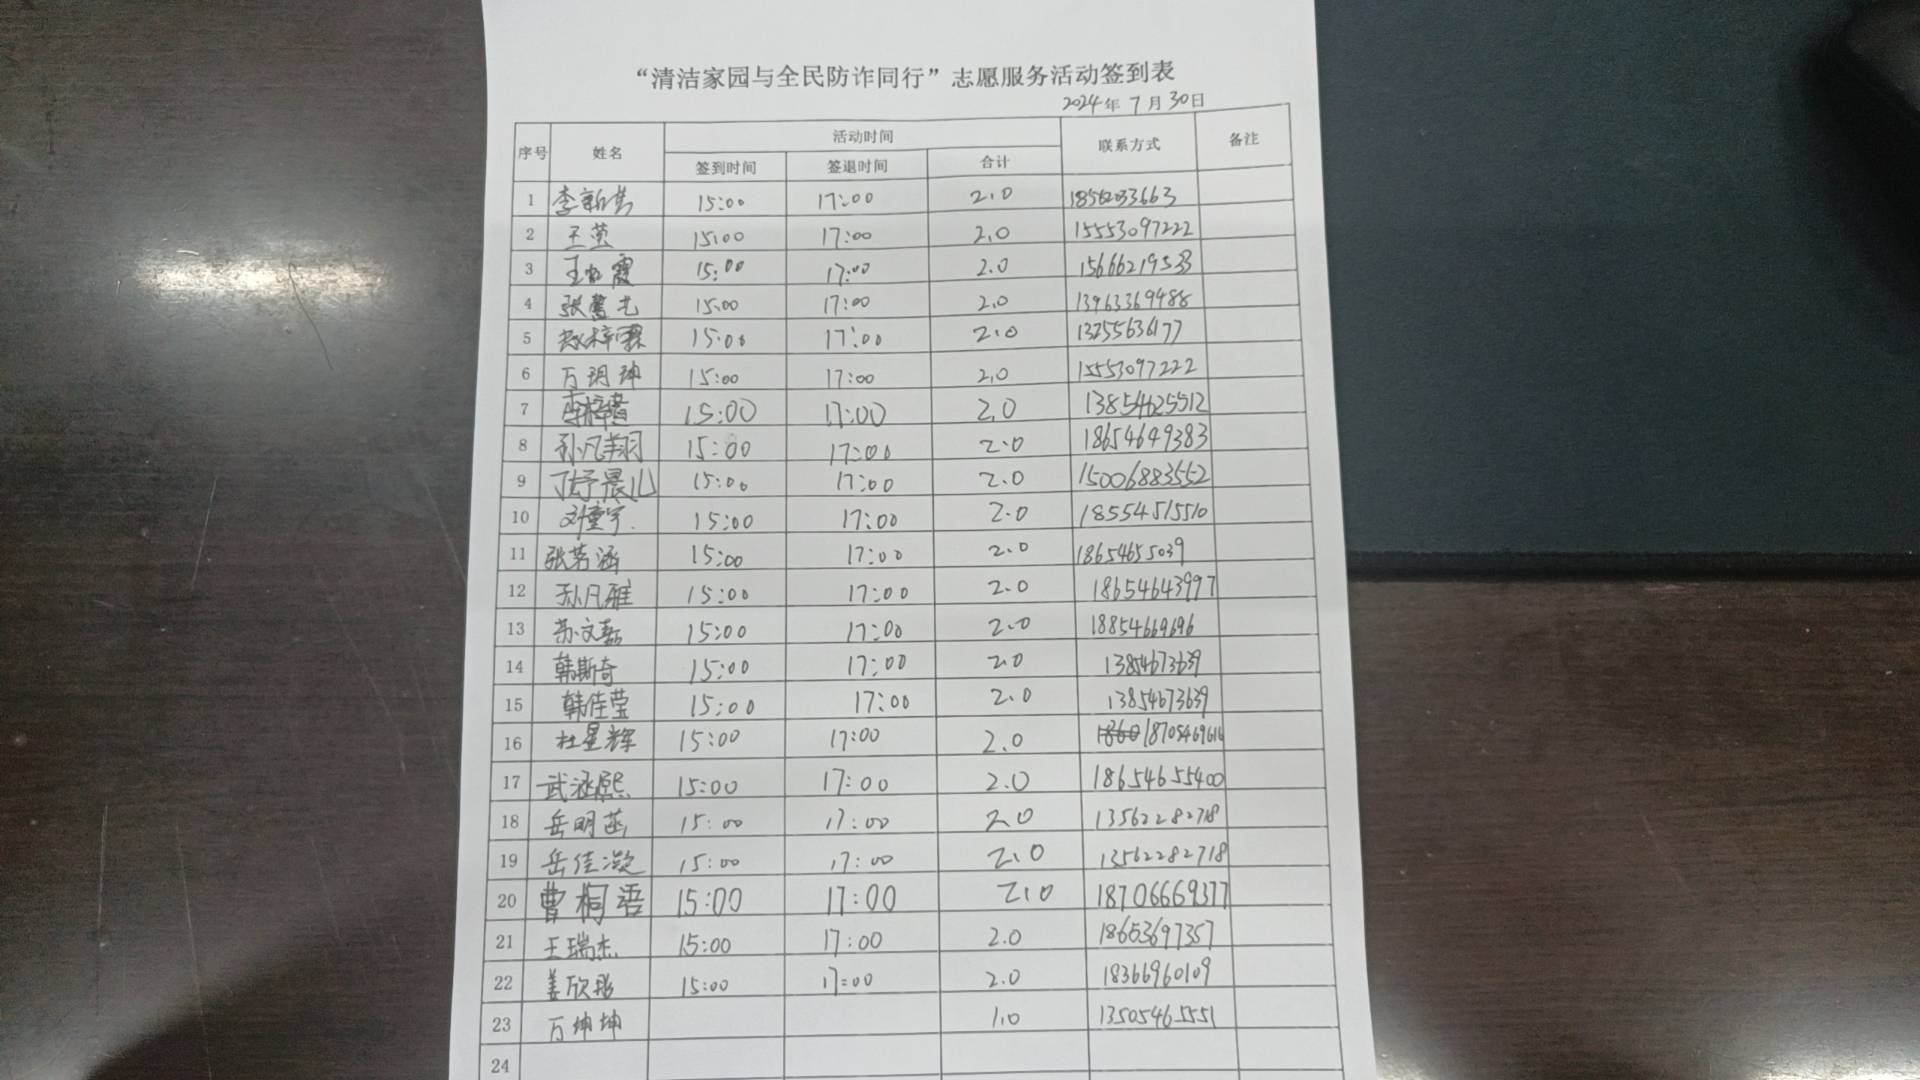 “清洁家园与全民防诈同行”志愿服务活动签到表
2024年 7月 30日
序号 姓名 活动时间 联系方式 备注
签到时间 签退时间 合计
1 李新 15:00 17:00 2.0
2 王萤 15:00 17:00 2.0 15553097222
3 王 霞 15:00 17:00 2.0 15666219533
4 张 艺 15:00 17:00 2.0 13963369488
5 赵梓霖 15:00 17:00 2.0 13255636177
6 万玥坤 15:00 17:00 2.0 15553097222
7 李梓 15:00 17:00 2.0 13854625512
8 孙凡翔 15:00 17:00 2.0 18654649383
9 晨儿 15:00 17:00 2.0 15006883552
10 刘童宇 15:00 17:00 2.0 18554515510
11 张茗涵 15:00 17:00 2.0 18654655039
12 孙凡雅 15:00 17:00 2.0 18654643997
13 苏文磊 15:00 17:00 2.0 18854669696
14 韩斯奇 15:00 17:00 2.0 13854673639
15 韩佳莹 15:00 17:00 2.0 13854673639
16 杜星辉 15:00 17:00 2.0 18705469616
17 武涵熙 15:00 17:00 2.0 18654655400
18 岳明菡 15:00 17:00 2.0 13562282718
19 岳佳凝 15:00 17:00 2.0 13562282718
20 曹桐语 15:00 17:00 2.0 18706669377
21 王瑞杰 15:00 17:00 2.0 18653697357
22 姜欣彤 15:00 17:00 2.0 18366960109
23 万坤坤 1.0 13505465551
24